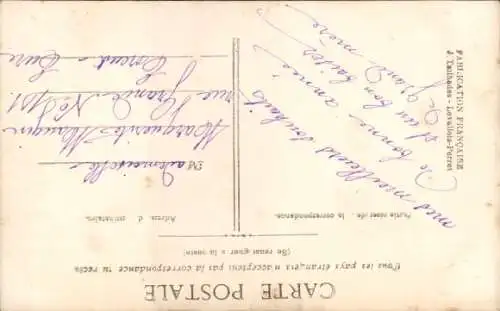 CARTE POSTALE
Tous les pays étrangers n'acceptent pas la correspondance au recto
(Se renseigner à la poste)
Partie réservée à la correspondance.
Adresse du destinataire.
mes meilleurs souhaits
de bonne année
et un bon baiser
Grand mère
M ademoiselle
Marguerite
rue Grande No
Dreux Eure
FABRICATION FRANÇAISE
J. Tailhades - Levallois-Perret